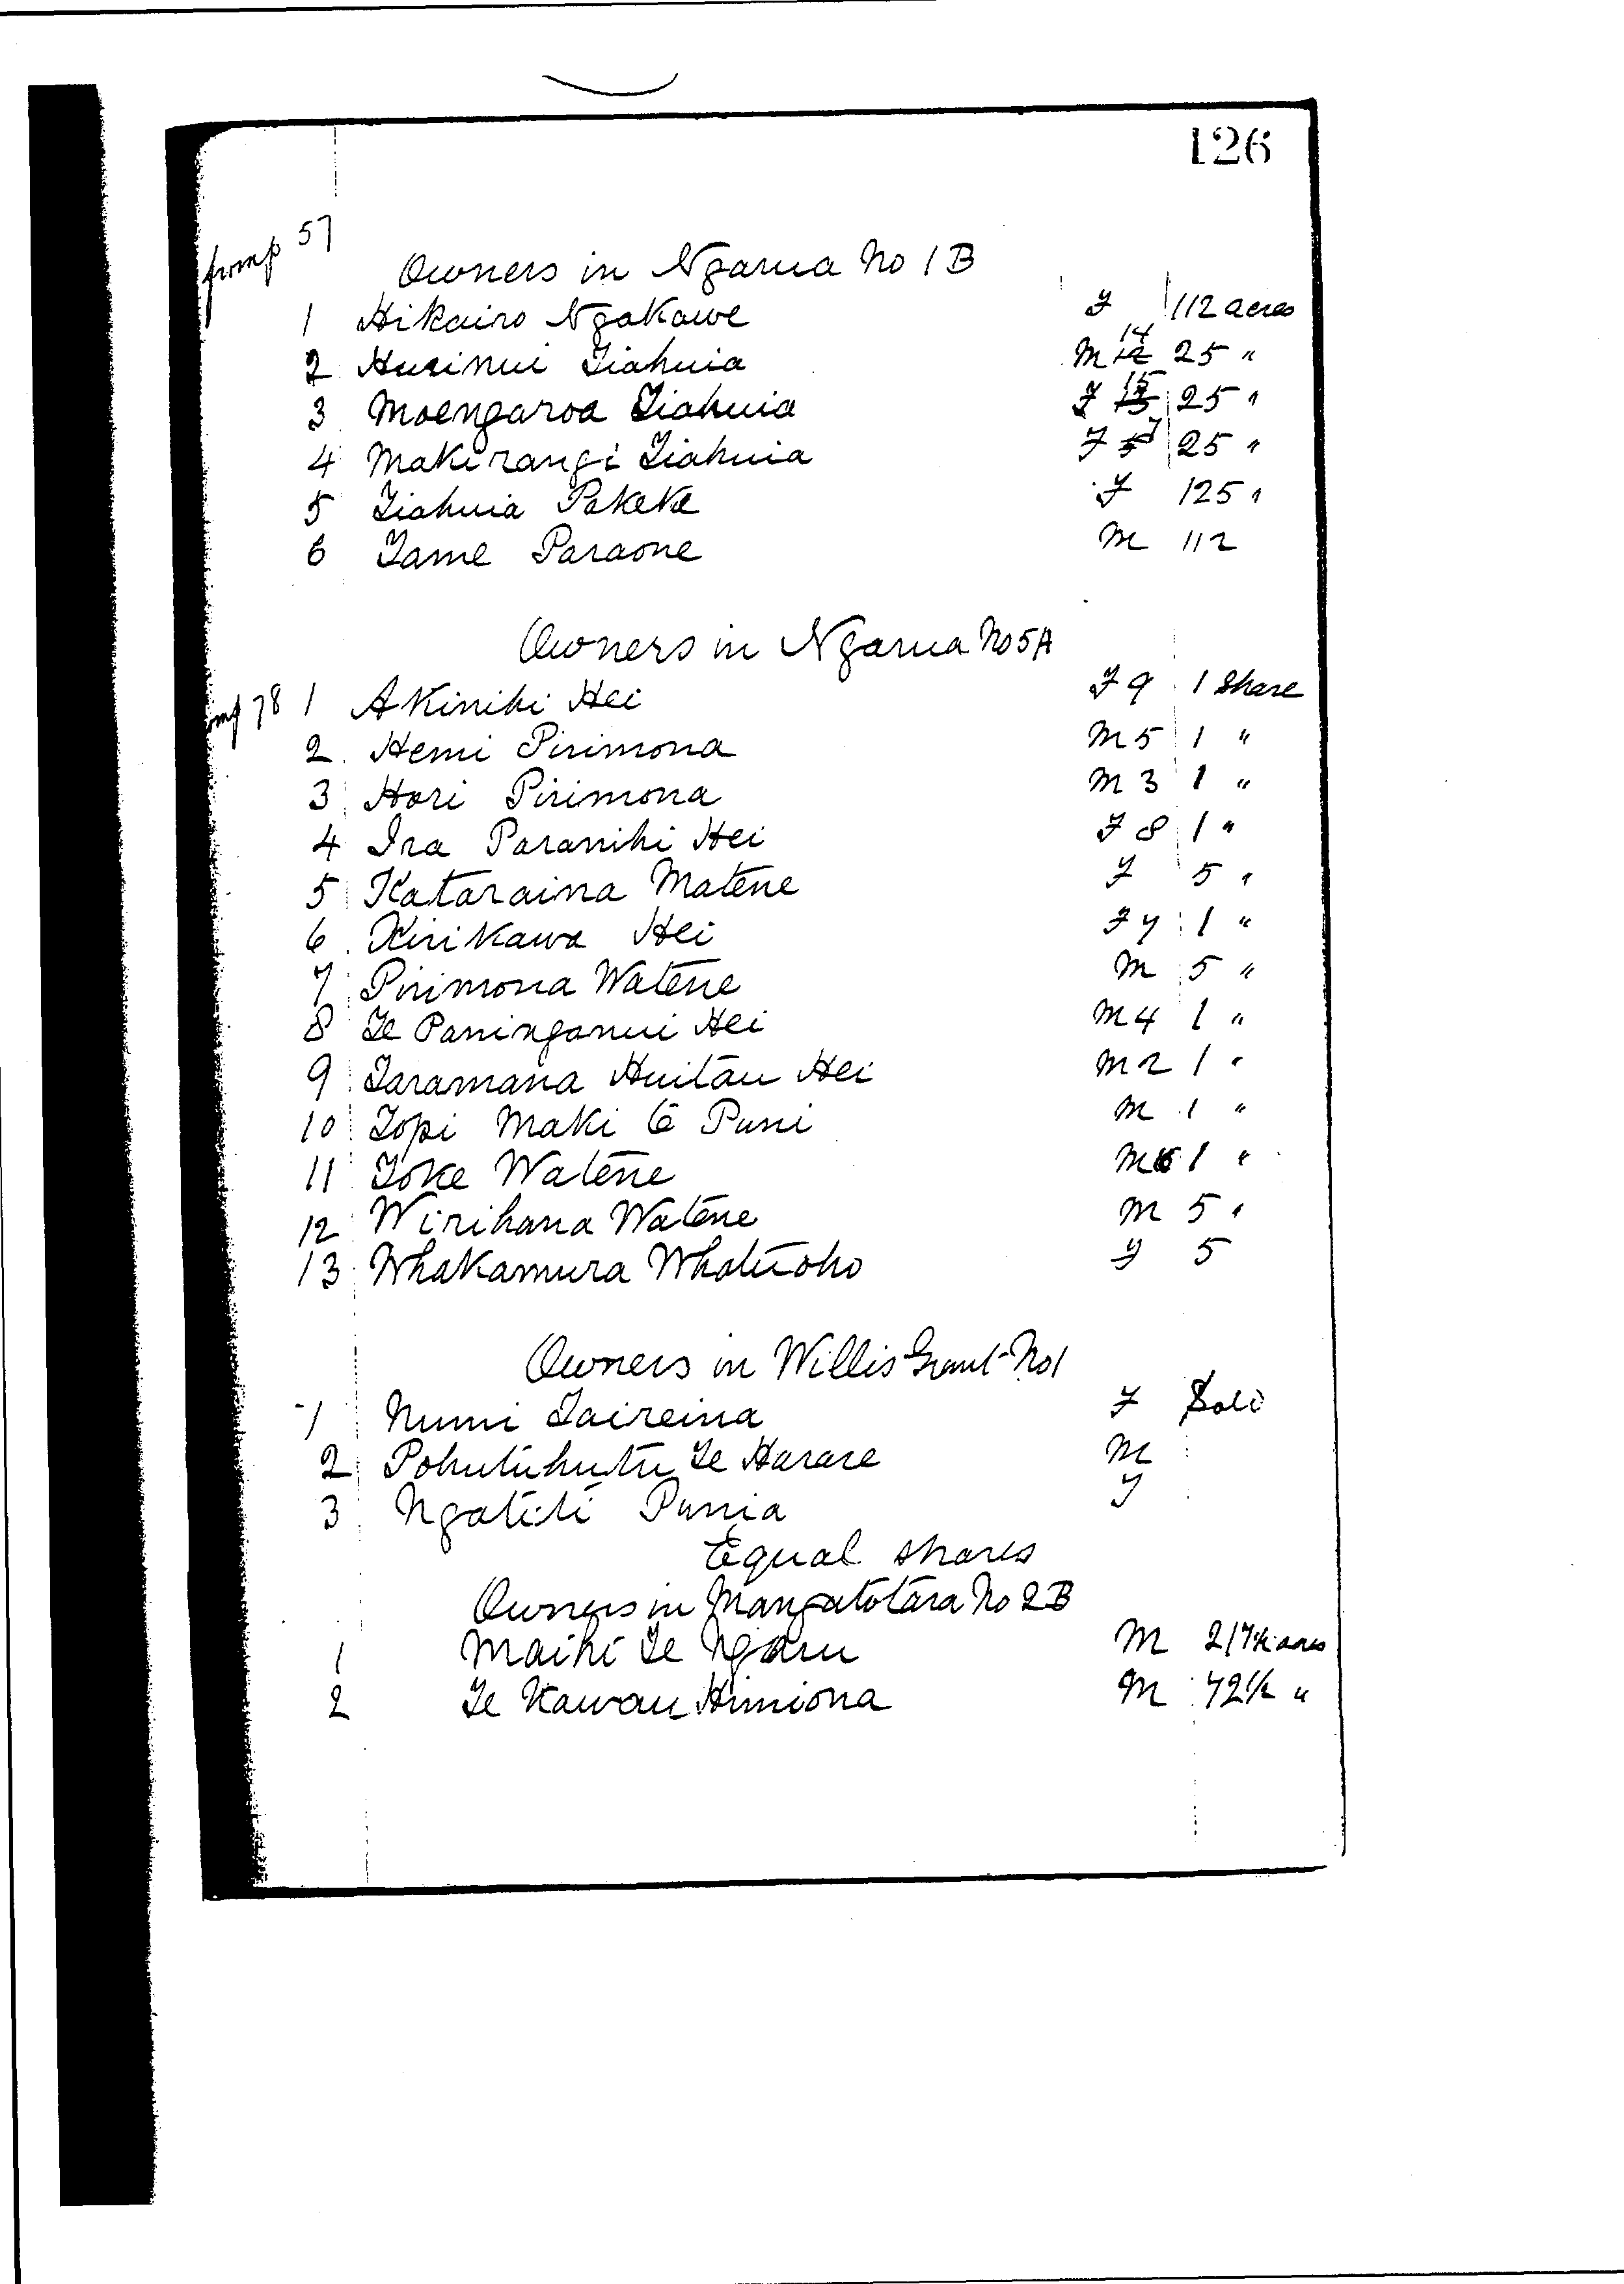 126
from p 57
Owners in Ngarua No 1 B
1 Hikairo Ngakawe F 112 acres
2 Hurinui Tiahuia M 12 14 25 "
3 Moengaroa Tiahuia F 15 25 "
4 Makirangi Tiahuia F 7 25 "
5 Tiahuia Pakeke F 125 "
6 Tame Paraone M 112
Owners in Ngarua No 5A
omp 78 1 Akinihi Hei F 9 1 Share
2 Hemi Pirimona M 5 1 "
3 Hori Pirimona M 3 1 "
4 Ira Paranihi Hei F 8 1 "
5 Kataraina Matene F 5 "
6 Kirikawa Hei F 7 1 "
7 Pirimona Watene M 5 "
8 Te Paninganui Hei M 4 1 "
9 Taramana Huitau Hei M 2 1 "
10 Topi Maki te Puni M 1 "
11 Toke Watene M 6 1 "
12 Wirihana Watene M 5 "
13 Whakamura Whatuoho F 5
Owners in Willis Grant No 1
1 Numi Taireina F Sold
2 Pohutuhutu Te Harare M
3 Ngatiti Punia F
Equal shares
Owners in Mangatotara No 2B
1 Maihi Te Ngaru M 217½ acres
2 Te Kawau Himiona M 72½ "